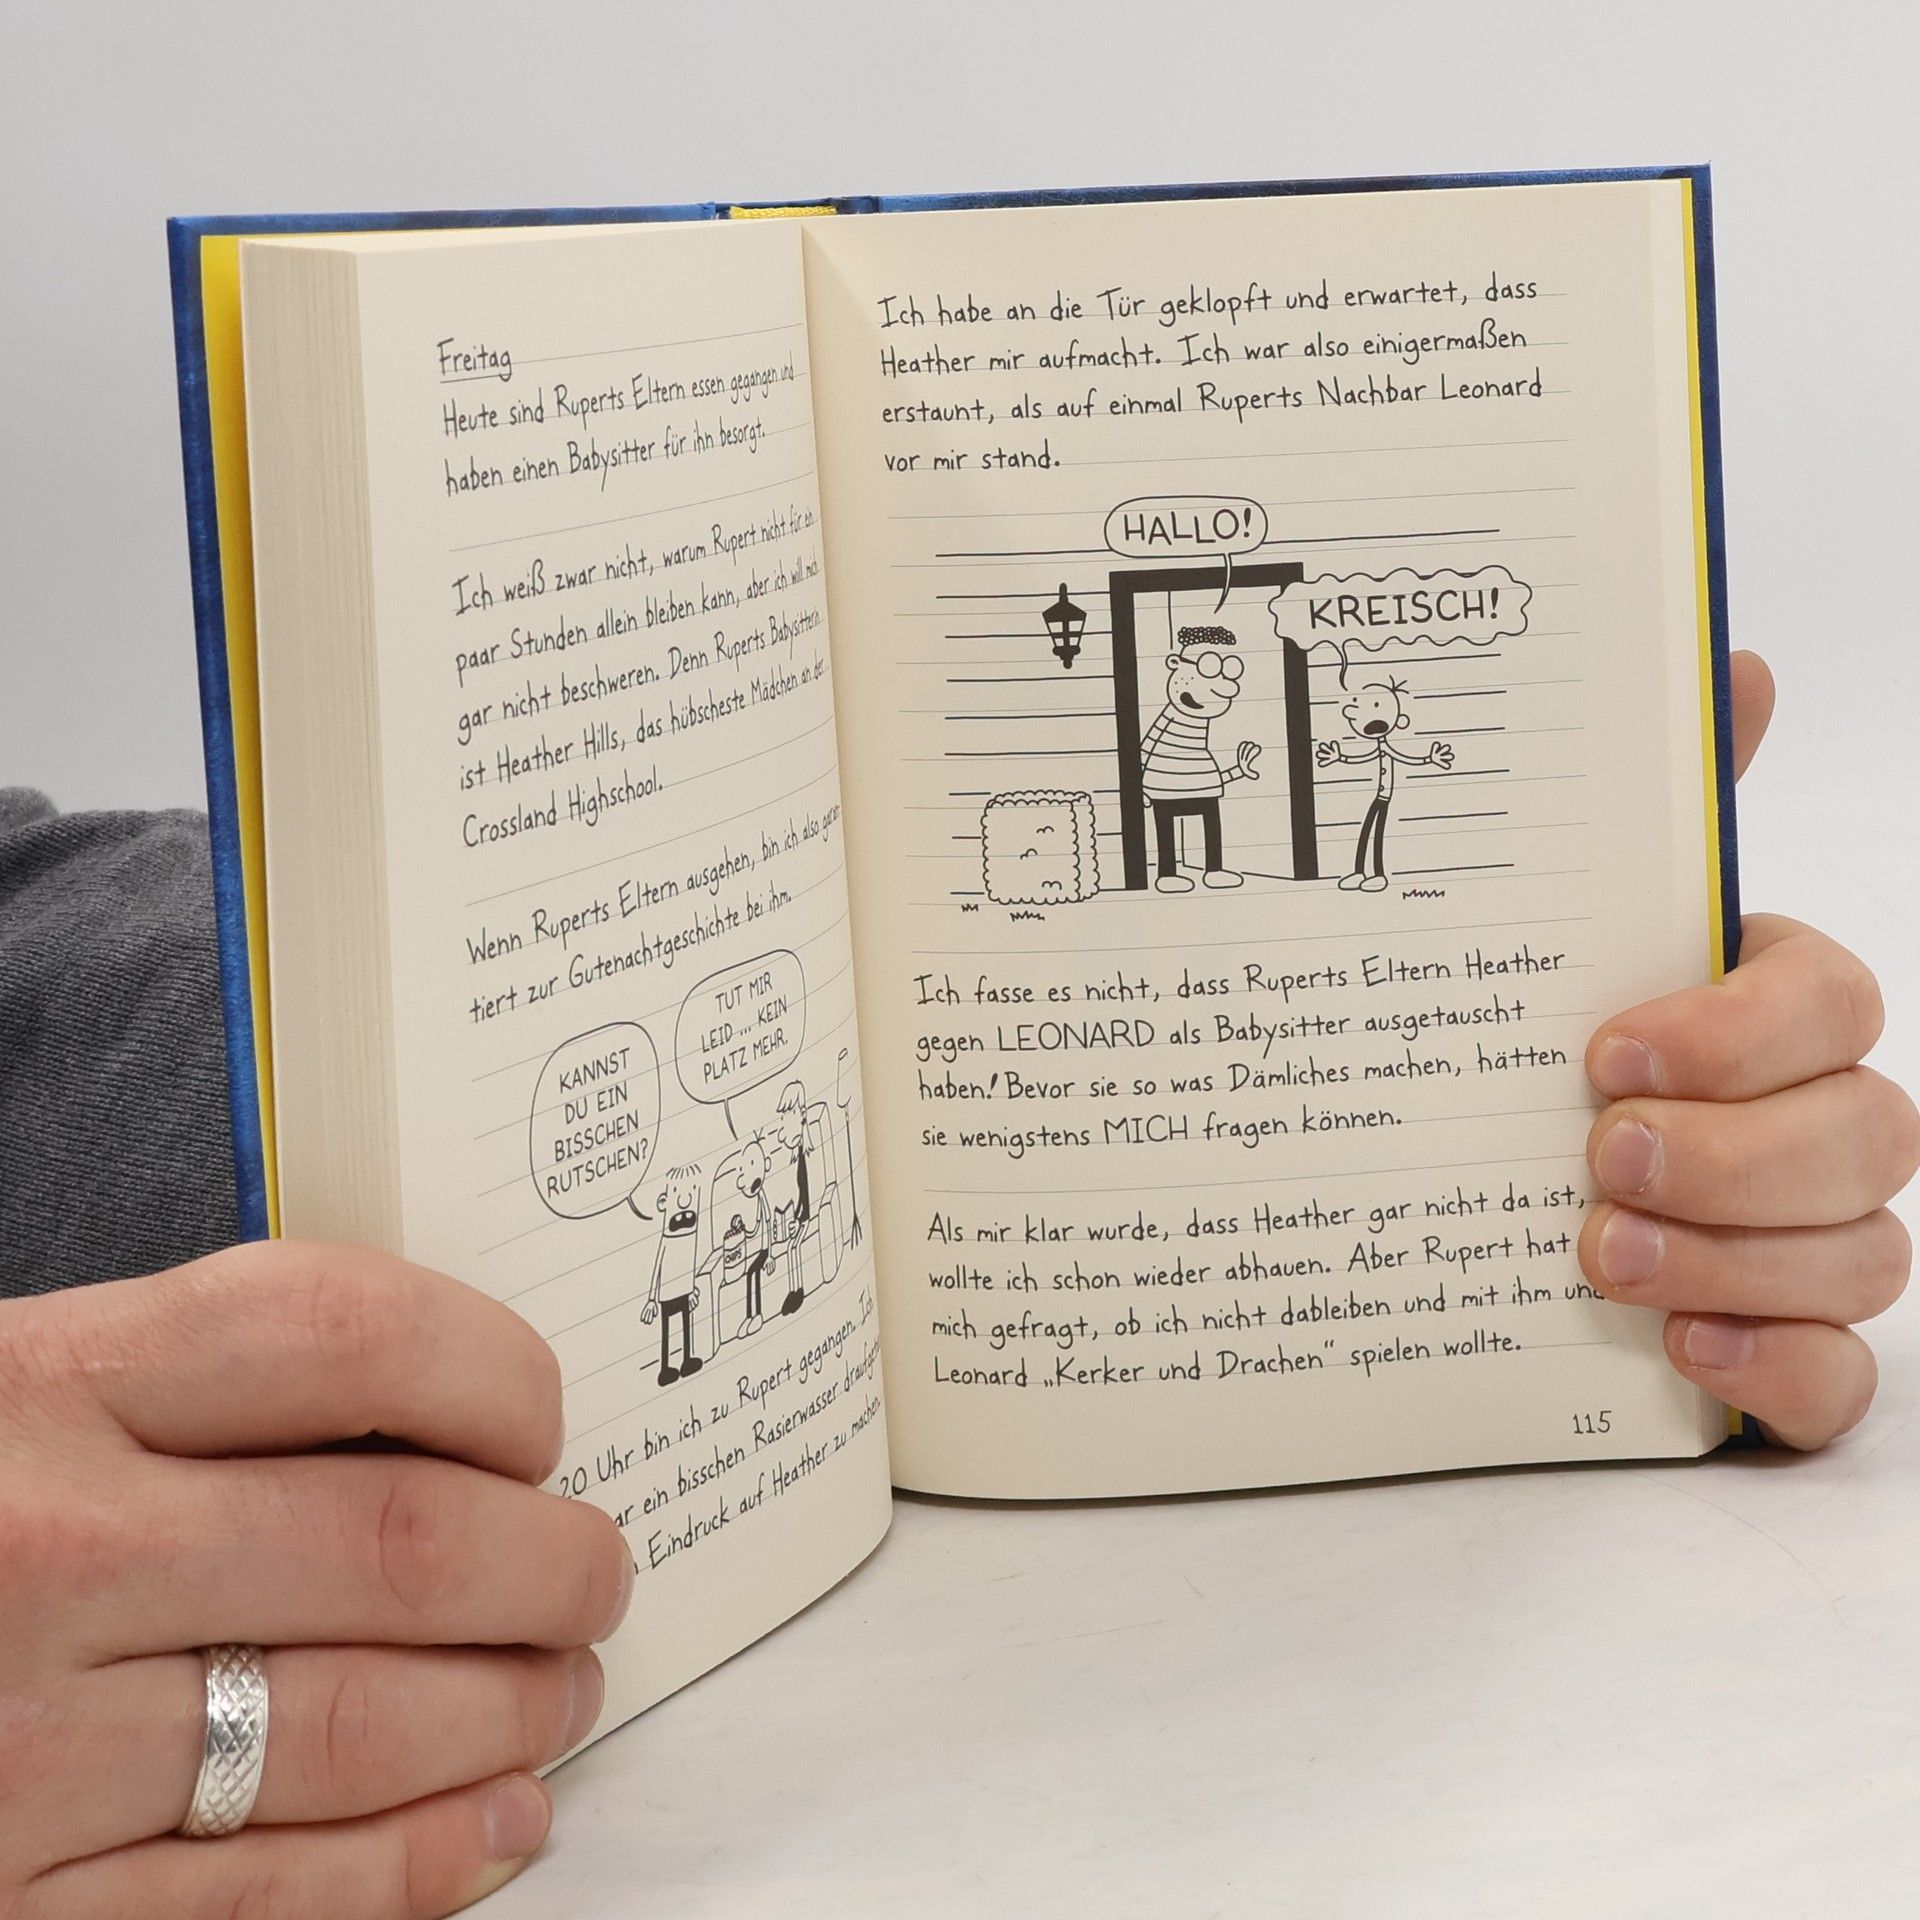 Freitag
Heute sind Ruperts Eltern essen gegangen und
haben einen Babysitter für ihn besorgt.
Ich weiß zwar nicht, warum Rupert nicht für ein
paar Stunden allein bleiben kann, aber ich will mich
gar nicht beschweren. Denn Ruperts Babysitterin
ist Heather Hills, das hübscheste Mädchen an der
Crossland Highschool.
Wenn Ruperts Eltern ausgehen, bin ich also garan-
tiert zur Gutenachtgeschichte bei ihm.
TUT MIR
LEID ... KEIN
PLATZ MEHR.
KANNST
DU EIN
BISSCHEN
RUTSCHEN?
CHIPS
20 Uhr bin ich zu Rupert gegangen. Ich
ein bisschen Rasierwasser
Eindruck auf Heather zu machen.
Ich habe an die Tür geklopft und erwartet, dass
Heather mir aufmacht. Ich war also einigermaßen
erstaunt, als auf einmal Ruperts Nachbar Leonard
vor mir stand.
HALLO!
KREISCH!
Ich fasse es nicht, dass Ruperts Eltern Heather
gegen LEONARD als Babysitter ausgetauscht
haben! Bevor sie so was Dämliches machen, hätten
sie wenigstens MICH fragen können.
Als mir klar wurde, dass Heather gar nicht da ist,
wollte ich schon wieder abhauen. Aber Rupert hat
mich gefragt, ob ich nicht dableiben und mit ihm und
Leonard „Kerker und Drachen" spielen wollte.
115